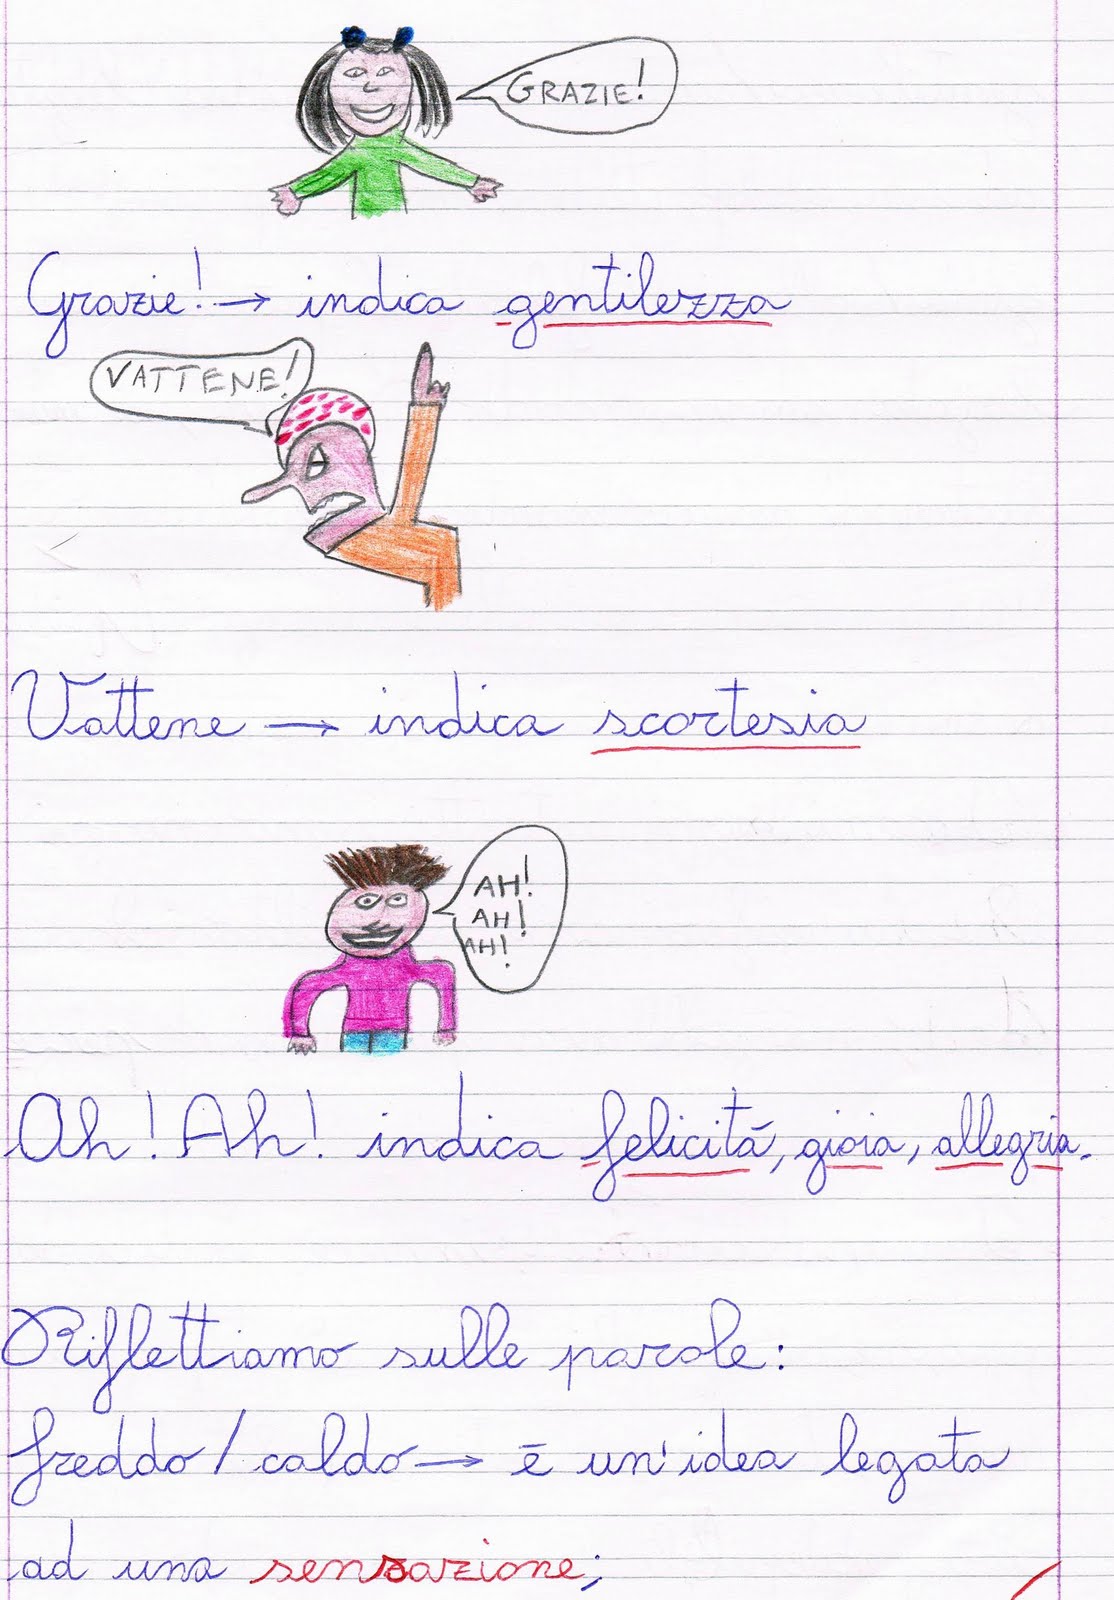 GRAZIE!
Grazie! → indica gentilezza
VATTENE!
Vattene → indica scortesia
AH!
AH!
AH!
Ah! Ah! indica felicitā, gioia, allegria.
Riflettiamo sulle parole:
freddo/caldo → ē un'idea legata
ad una sensazione;